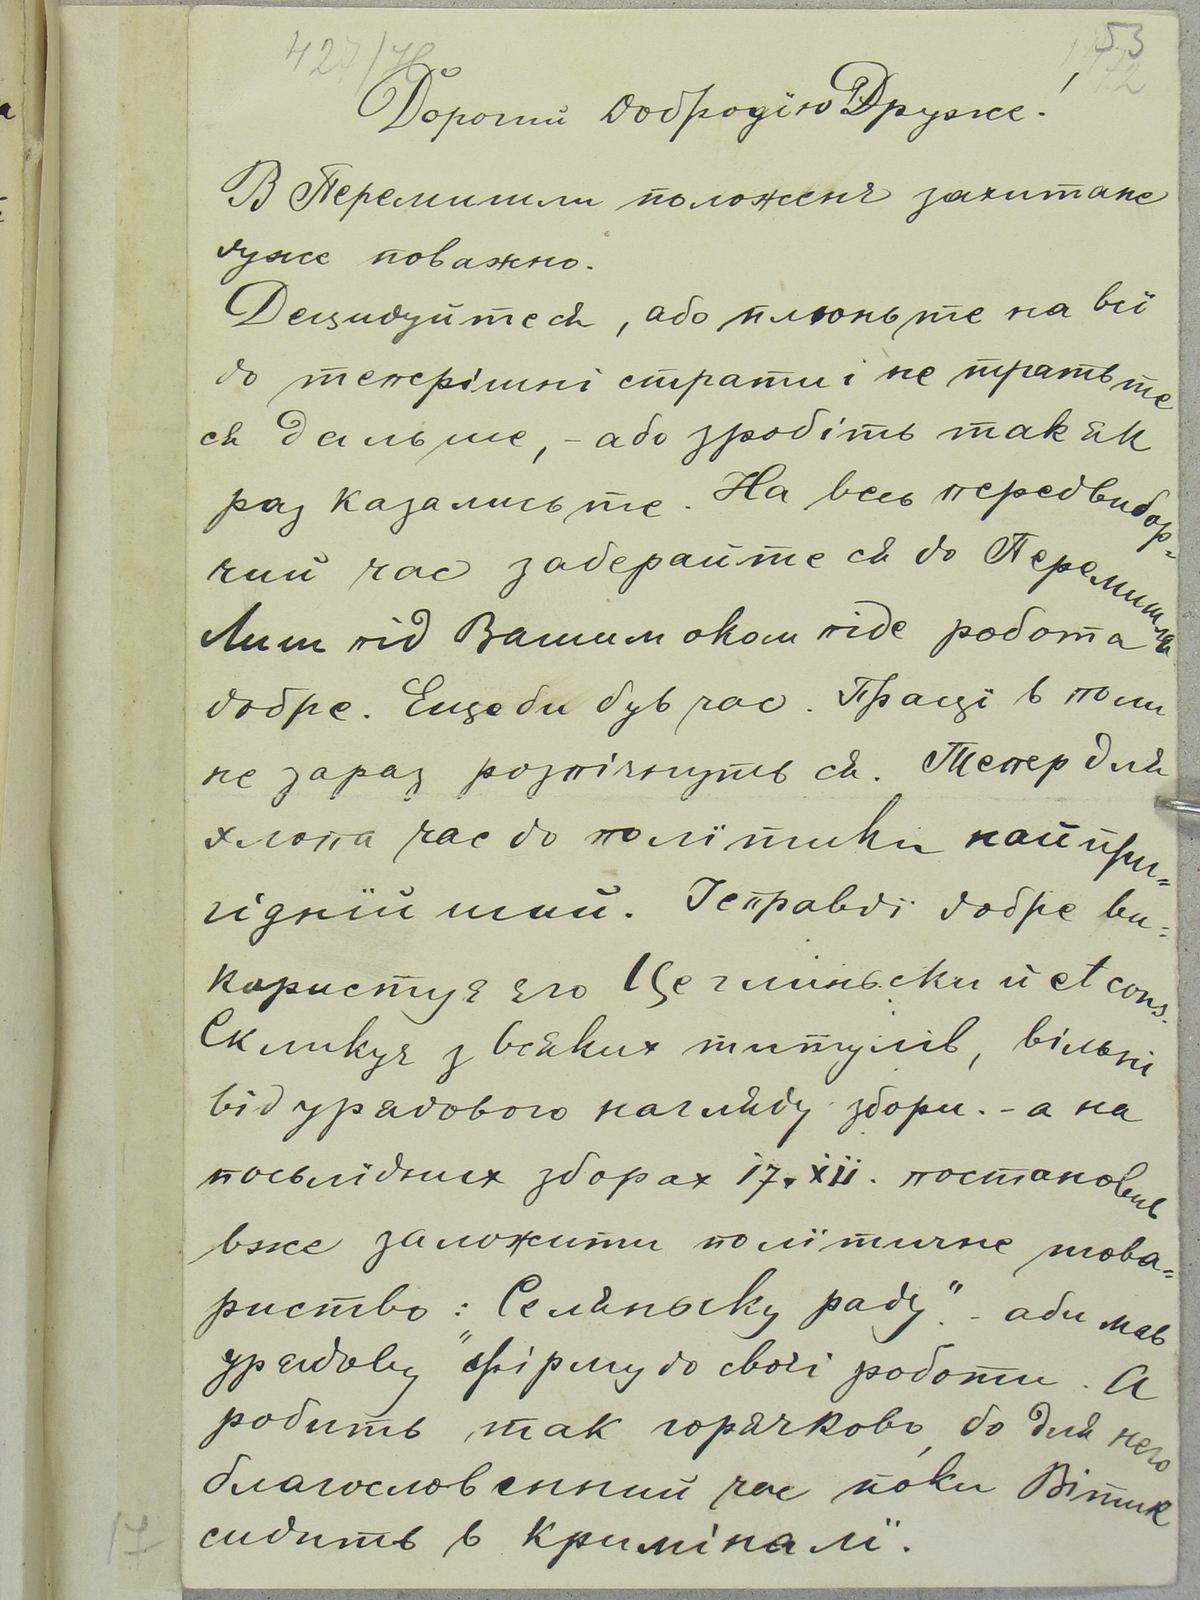 427/
53
Дорогий Добродїю Друже!
В Перемишли положенє захитане
дуже поважно.
Децидуйте ся, або плюньте на всї
до теперішні страти і не тратьте
ся дальше, - або зробіть так як
раз казалисьте. На весь передвибор=
чий час заберайте ся до Перемишля
Лиш під Вашим оком піде робота
добре. Ещеби був час. Працї в поли
не зараз розпічнуть ся. Тепер для
хлопа час до полїтики найпри=
гіднїйший. І справдї добре ви=
користує єго Цеглиньский et cons.
Скликує з всяких титулів, вільні
від урядового нагляду збори. - а на
посьлїдних зборах 17.XII. постановив
вже заложити полїтичне това=
риство: Селяньску раду" - аби мав
урядову "фірму до своєї роботи. А
робить так горячково, бо для него
благословенний час поки Вітик
сидить в криміналї.
17